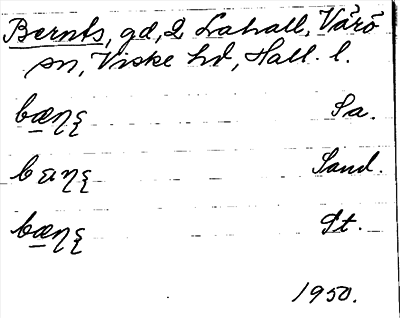 Bernts, gd, 2 Lahall, Värö
sn, Viske hd, Hall. l.
Sa.
Sand.
St.
1950.